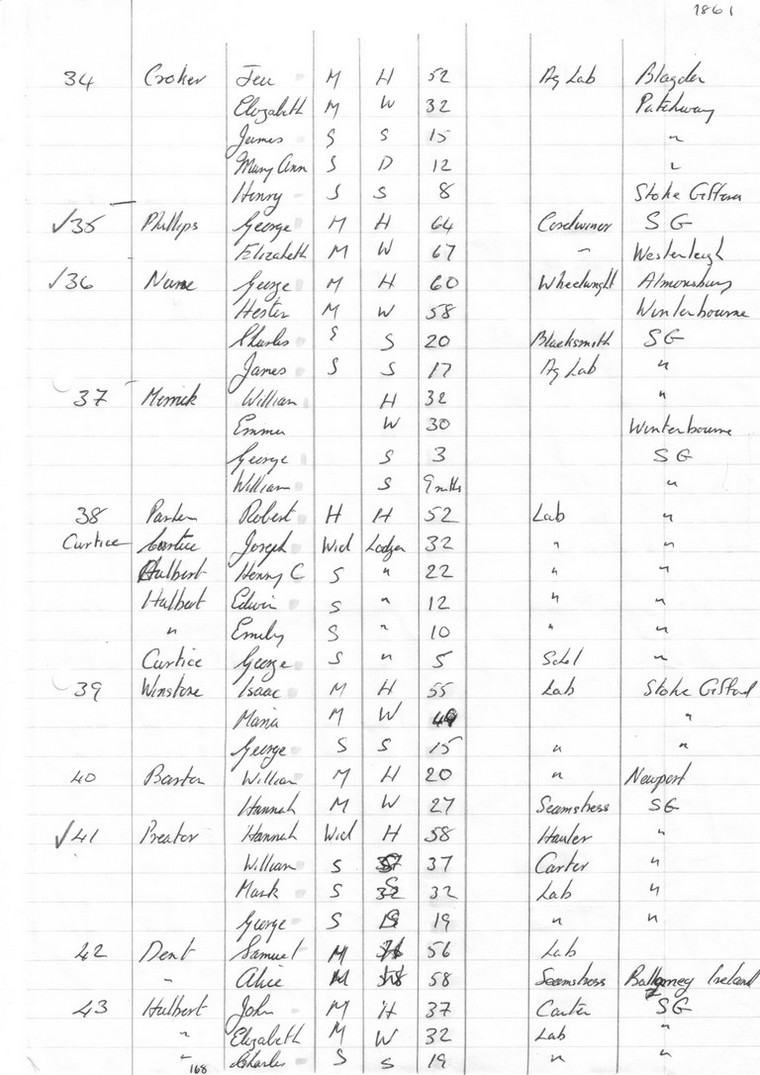 1861
34 Croker Jeu M H 52 Ag Lab Blagdon
Elizabeth M W 32 Patchway
James S S 15 "
Mary Ann S D 12 "
Henry S S 8 Stoke Gifford
✓35 Phillips George M H 64 Cordwiner SG
Elizabeth M W 67 " Westerleigh
✓36 Nurse George M H 60 Wheelwright Almonsbury
Hester M W 58 Winterbourne
Charles S S 20 Blacksmith SG
James S S 17 Ag Lab "
37 Merrick William H 32 "
Emma W 30 Winterbourne
George S 3 SG
William S 9 mths "
38 Robert H H 52 Lab "
Curtice Curtice Joseph Wid Lodger 32 " "
Hulbert Henry C S " 22 " "
Hulbert Edwin S " 12 " "
" Emily S " 10 " "
Curtice George S " 5 Schol "
39 Winstone Isaac M H 55 Lab Stoke Gifford
Maria M W 49 "
George S S 15 " "
40 Barton William M H 20 " Newport
Hannah M W 27 Seamstress SG
✓41 Preator Hannah Wid H 58 Hauler "
William S S 37 Carter "
Mark S S 32 Lab "
George S S 19 " "
42 Dent Samuel M H 56 Lab
" Alice M 58 Seamstress Ireland
43 Hulbert John M H 37 Carter SG
" Elizabeth M W 32 Lab "
" Charles S S 19 " "
168